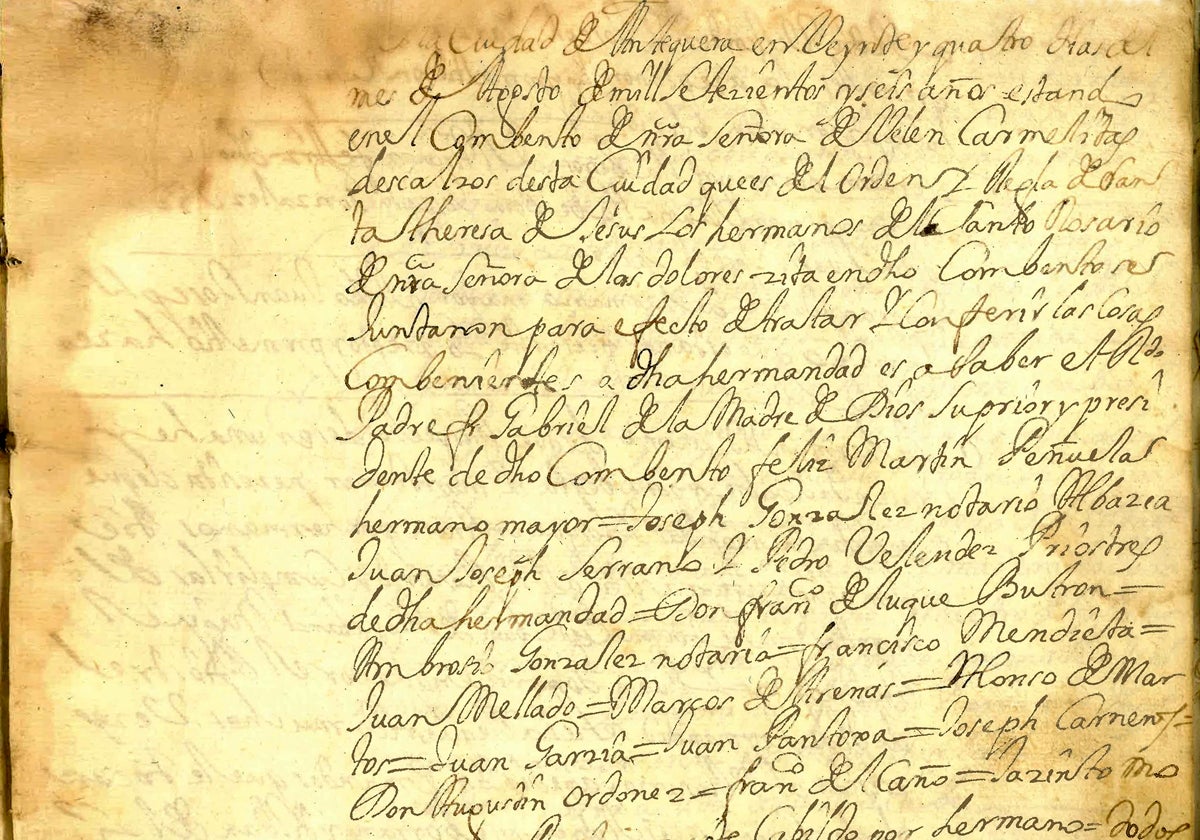 la Ciudad de Antequera en Veynte y quatro dias del
mes de Agosto de mill setezientos y seis años estand
en el Combento de nra Señora de Velen Carmelitas
descalzos desta Ciudad que es del Orden y Regla de San
ta theresa de Jesus los hermanos del Santo Rosario
de nra Señora de los dolores zita en dho Combento se
Juntaron para efecto de tratar y Conferir las Cosas
Combenientes a dha hermandad es a saber el Rdo
Padre fr Gabriel de la Madre de Dios Suprior y presi
dente de dho Combento feliz Martin Peñuelas
hermano mayor = Joseph Gonzalez notario Albazea
Juan Joseph Serrano y Pedro Velendez Priostes
de dha hermandad = Don franco de luque Bustron =
Ambrosio Gonzalez notario = francisco Mendieta =
Juan Mellado = Marcos de Arenas = Alonso de Mar
tos = Juan Garzia = Juan Pantoxa = Joseph Carnen
Don Augustin Ordonez = franco del Caño = Jazinto Mo
de Cabildo por hermano = todos